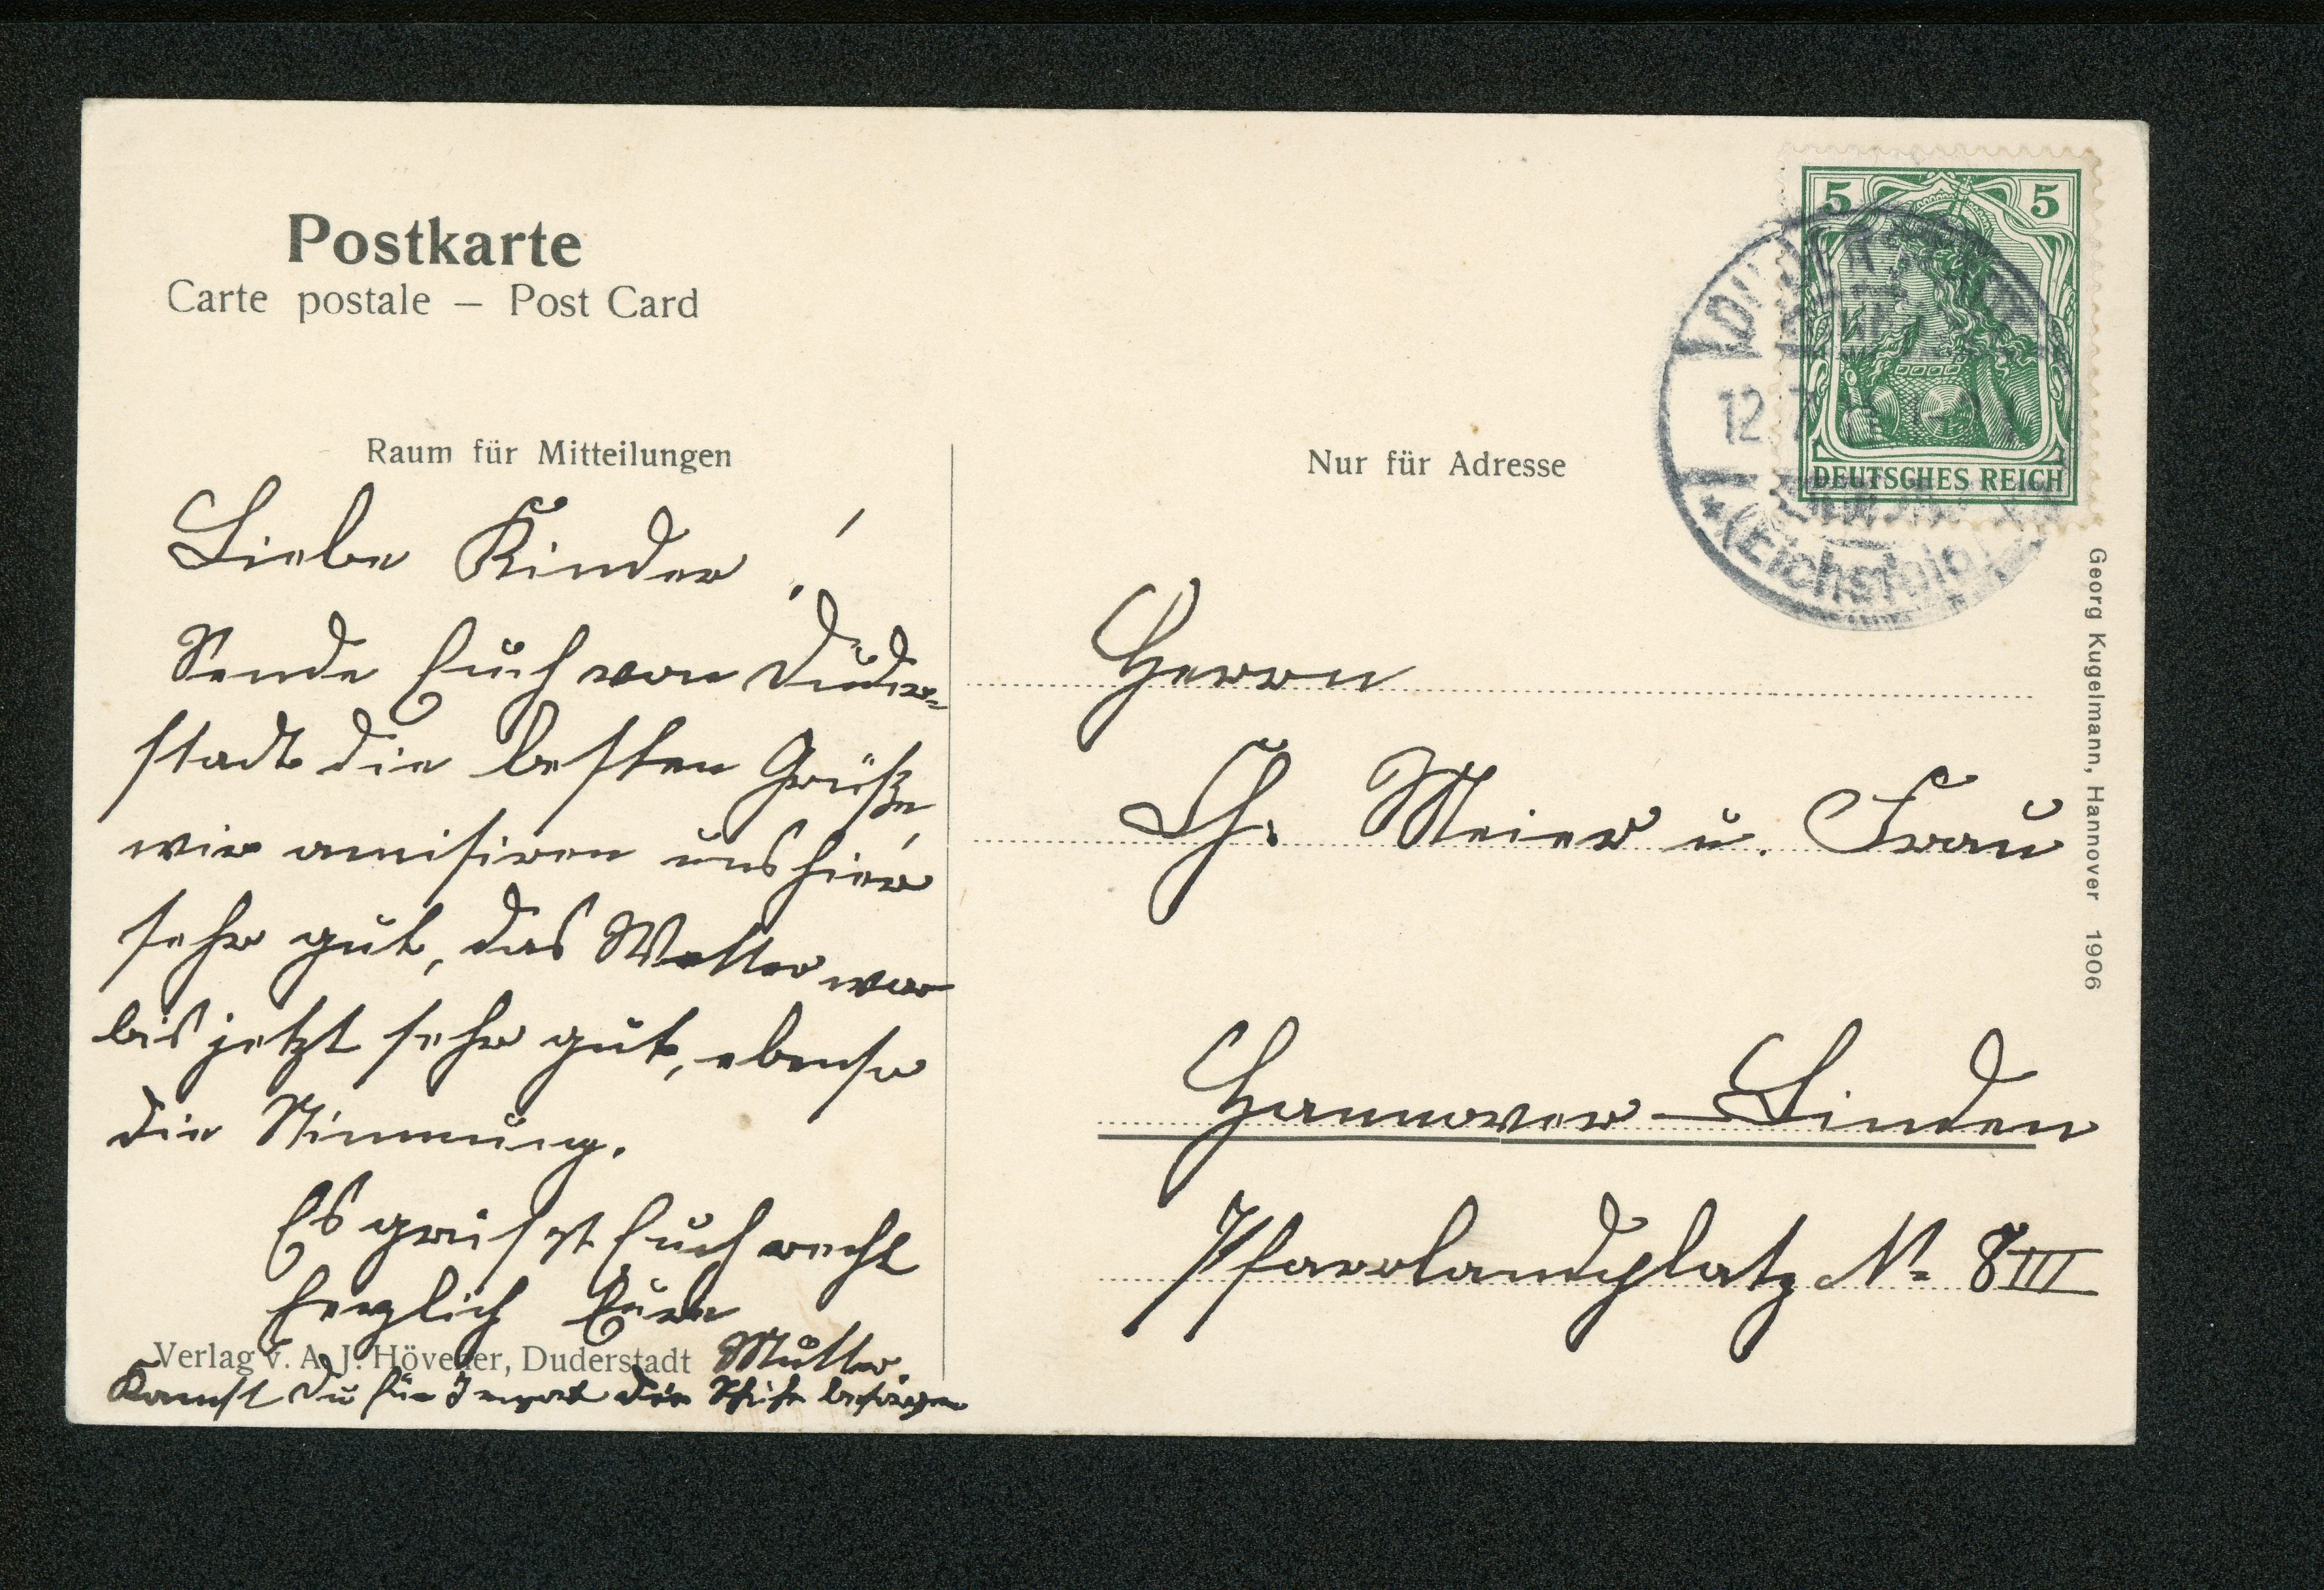 Postkarte
Carte postale — Post Card
Raum für Mitteilungen
Liebe Kinder!
Sende Euch von Duder-
stadt die besten Grüße,
wir amisiren uns hier
sehr gut, das Wetter war
bis jetzt sehr gut, ebenso
die Stimmung.
Es grüsst Euch recht
herzlich Eure
Mutter.
Verlag v. A. J. Hövener, Duderstadt
Kannst Du für die besorgen
Nur für Adresse
5 5
DEUTSCHES REICH
12.7.
(Eichsfeld)
Herrn
Ch. Meier u. Frau
Hannover-Linden
Pfarrlandplatz No 8 III
Georg Kugelmann, Hannover 1906